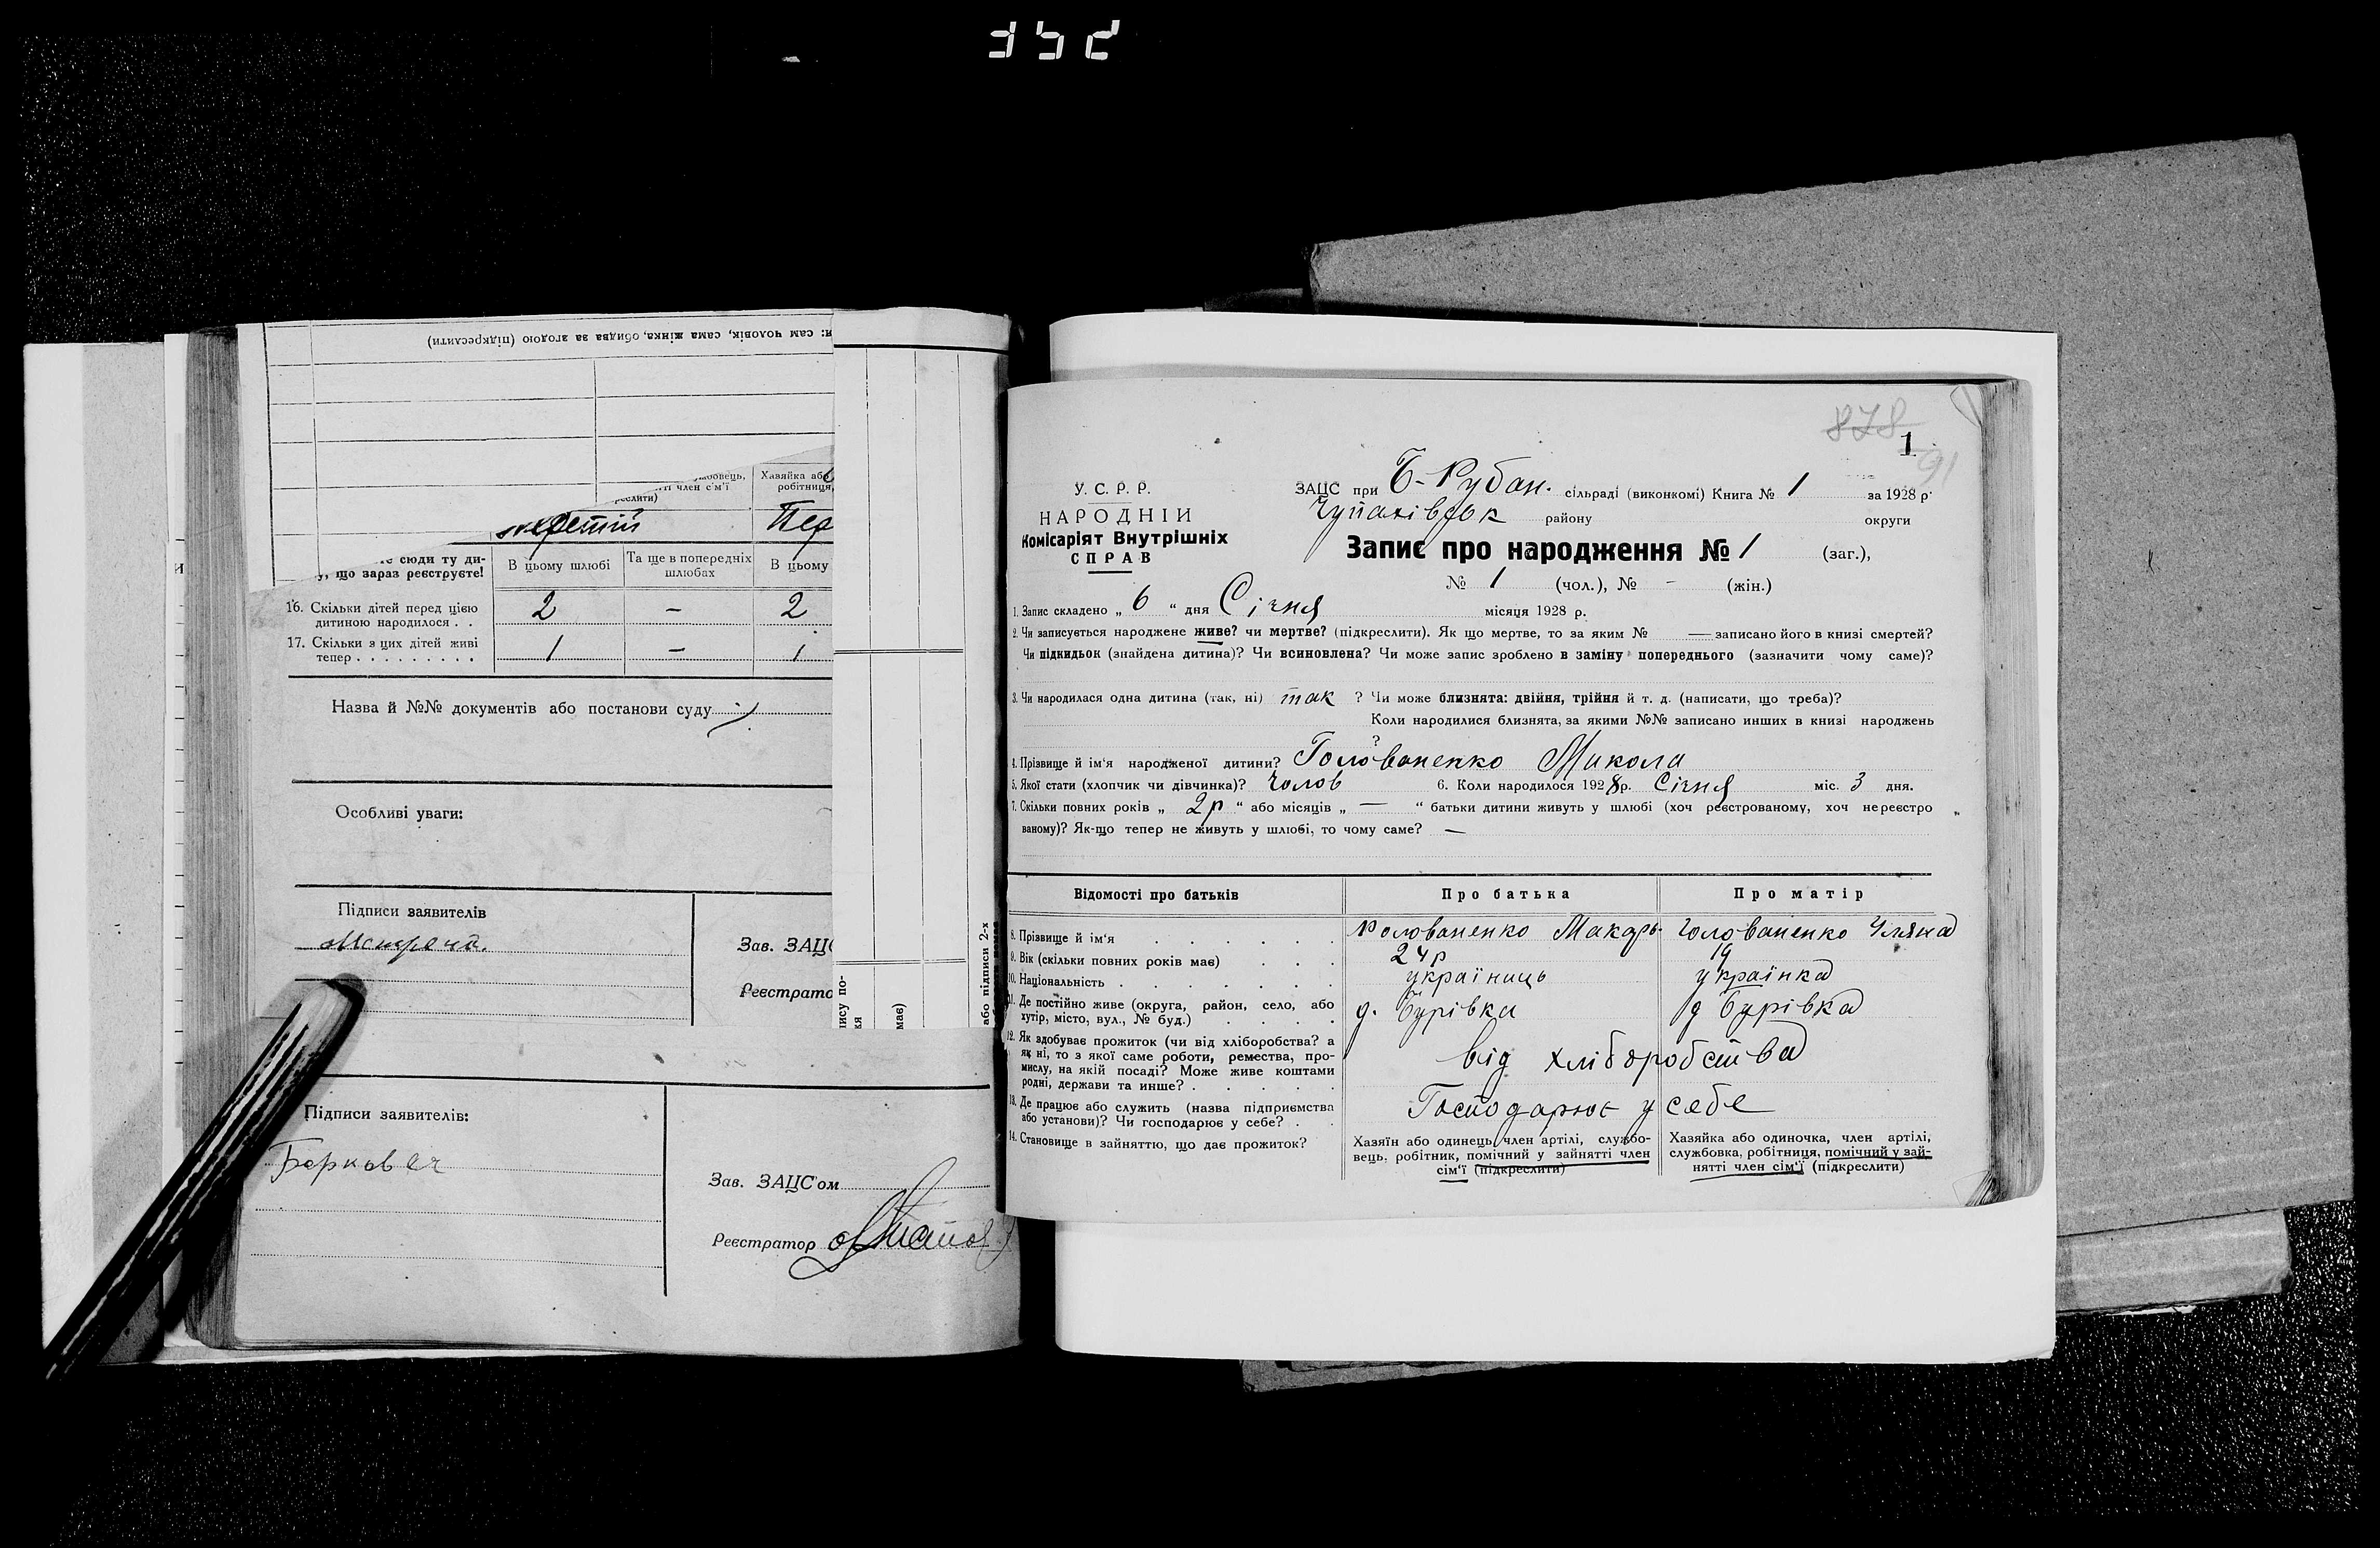 352
сам чоловік, сама жінка, обидва за згодою (підкреслити)
Хазяйка або
член с'м'ї
робітниця,
третій
Пер
сюди ту ди-
що зараз реєструєте!
В цьому шлюбі
Та ще в попередніх шлюбах
В цьому
16. Скільки дітей перед цією
дитиною народилося . .
2 — 2
17. Скільки з цих дітей живі
тепер . . . . . . . . .
1 — 1
Назва й №№ документів або постанови суду
Особливі уваги:
Підписи заявителів
Зав. ЗАЦС
Реєстрато
або підписи 2-х
має)
Підписи заявителів:
Зав. ЗАЦС'ом
Реєстратор
878
1
91
У. С. Р. Р.
НАРОДНІЙ
Комісаріят Внутрішніх
СПРАВ
ЗАЦС при Б-Рубан. сільраді (виконкомі) Книга № 1 за 1928 р.
району округи
Запис про народження № 1 (заг.),
№ 1 (чол.), № - (жін.)
1. Запис складено „ 6 “ дня Січня місяця 1928 р.
2. Чи записується народжене живе? чи мертве? (підкреслити). Як що мертве, то за яким № — записано його в книзі смертей?
Чи підкидьок (знайдена дитина)? Чи всиновлена? Чи може запис зроблено в заміну попереднього (зазначити чому саме)?
3. Чи народилася одна дитина (так, ні) так ? Чи може близнята: двійня, трійня й т. д. (написати, що треба)?
Коли народилися близнята, за якими №№ записано инших в книзі народжень
?
4. Прізвище й ім'я народженої дитини? Голованенко Микола
5. Якої стати (хлопчик чи дівчинка)? Чолов 6. Коли народилося 1928 р. Січня міс. 3 дня.
7. Скільки повних років „ 2р “ або місяців „ — “ батьки дитини живуть у шлюбі (хоч реєстрованому, хоч нереєстро
ваному)? Як-що тепер не живуть у шлюбі, то чому саме? —
Відомості про батьків Про батька Про матір
8. Прізвище й ім'я . . . . . . Голованенко Макарь Голованенко Уляна
9. Вік (скільки повних років має) . . . 24р 19
10. Національність . . . . . . . українць українка
11. Де постійно живе (округа, район, село, або
хутір, місто, вул., № буд.) . . . . д. Бурівка д Бурівка
12. Як здобуває прожиток (чи від хліборобства? а
як ні, то з якої саме роботи, ремества, про-
мислу, на якій посаді? Може живе коштами
родні, держави та инше? . . . . . від хліборобства
13. Де працює або служить (назва підприємства
або установи)? Чи господарює у себе? . . Господарює у себе
14. Становище в зайняттю, що дає прожиток?
Хазяїн або одинець, член артілі, службо-
вець, робітник, помічний у зайнятті член
сім'ї (підкреслити)
Хазяйка або одиночка, член артілі,
службовка, робітниця, помічний у зай-
нятті член сім'ї (підкреслити)